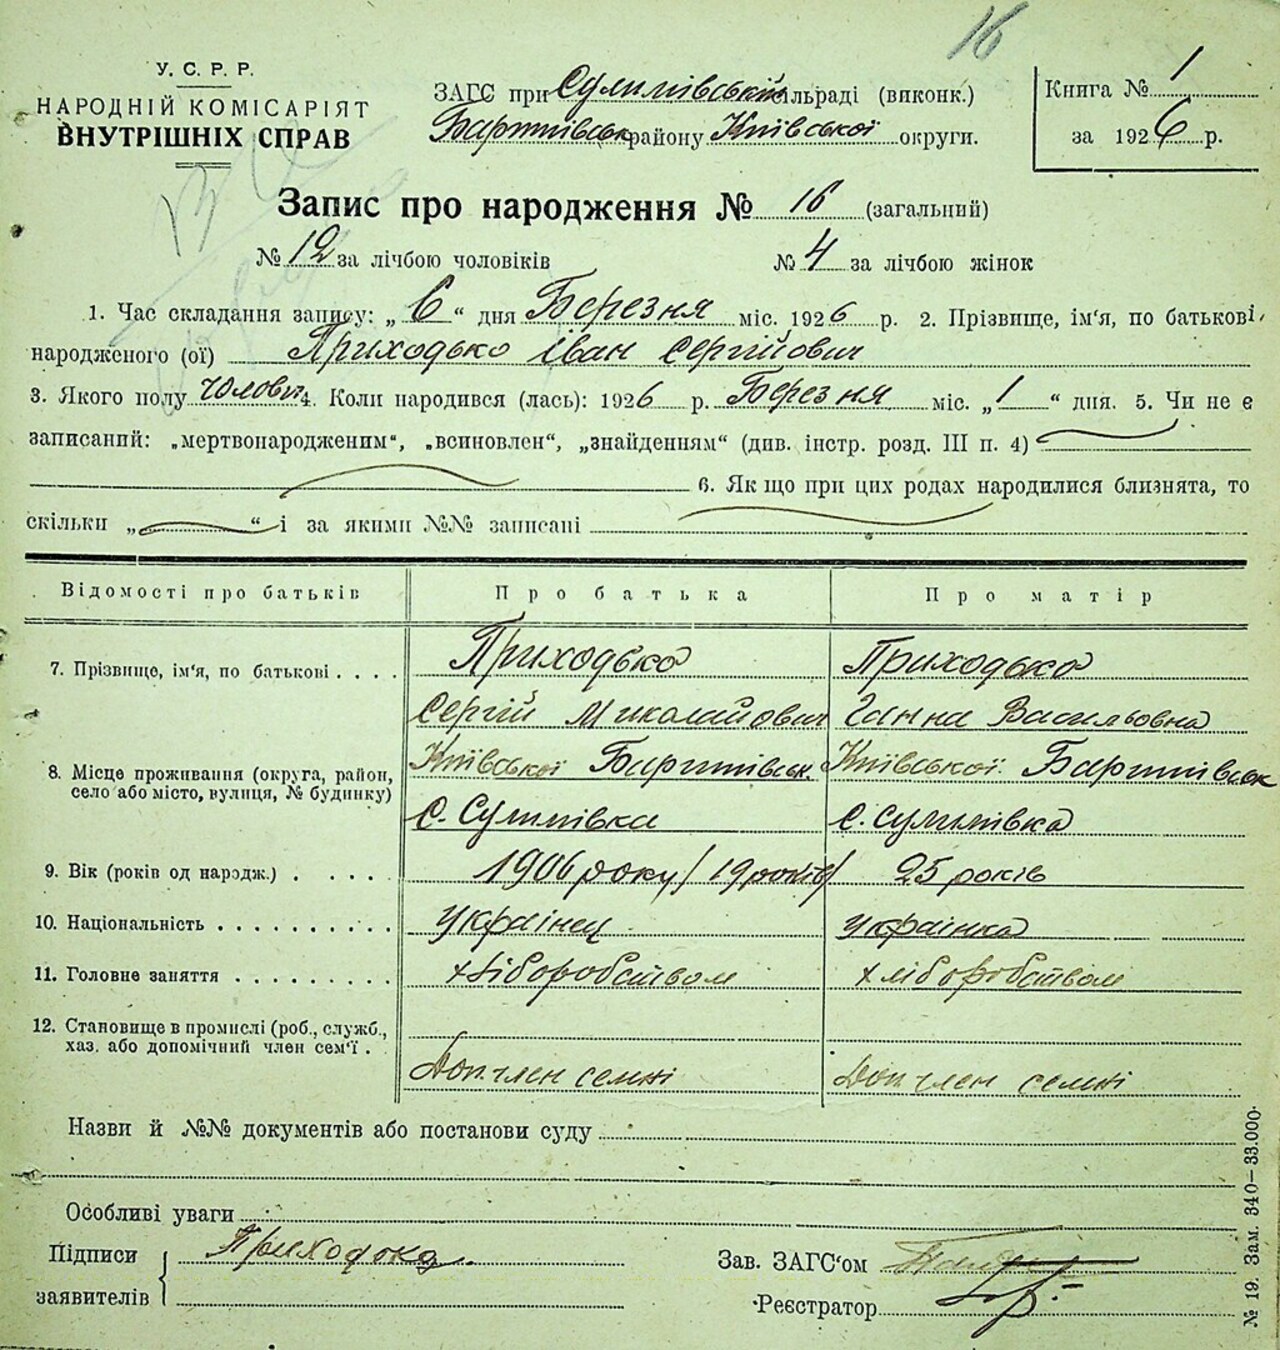 16
У. С. Р. Р.
НАРОДНІЙ КОМІСАРІЯТ
ВНУТРІШНІХ СПРАВ
ЗАГС при Сулимівській сільраді (виконк.)
Баришівськ району Київської округи.
Книга № 1
за 1926 р.
Запис про народження № 16 (загальний)
№ 12 за лічбою чоловіків № 4 за лічбою жінок
1. Час складання запису: „ 6 “ дня Березня міс. 1926 р. 2. Прізвище, ім‘я, по батькові
народженого (ої) Приходько Іван Сергійович
3. Якого полу Чолові 4. Коли народився (лась): 1926 р. Березня міс. „ 1 “ дня. 5. Чи не є
записаний: „мертвонародженим“, „всиновлен“, „знайденням“ (див. інстр. розд. III п. 4)
6. Як що при цих родах народилися близнята, то
скільки „ “ і за якими №№ записані
Відомості про батьків Про батька Про матір
7. Прізвище, ім‘я, по батькові . . . . Приходько Приходько
Сергій Миколайович Ганна Васильовна
8. Місце проживання (округа, район, Київської Баришівськ. Київської Баришівськ
село або місто, вулиця, № будинку) С. Сулимівка С. Сулимівка
9. Вік (років од народж.) . . . . . 1906 року / 19 років / 25 років
10. Національність . . . . . . . . . . Українец Українка
11. Головне заняття . . . . . . . . . хліборобством хліборобством
12. Становище в промислі (роб., служб.,
хаз. або допомічний член сем‘ї . Доп. член семні Доп член семні
Назви й №№ документів або постанови суду
Особливі уваги
Підписи Приходько
заявителів
Зав. ЗАГС‘ом
Реєстратор
№ 19. Зам. 340—33.000.